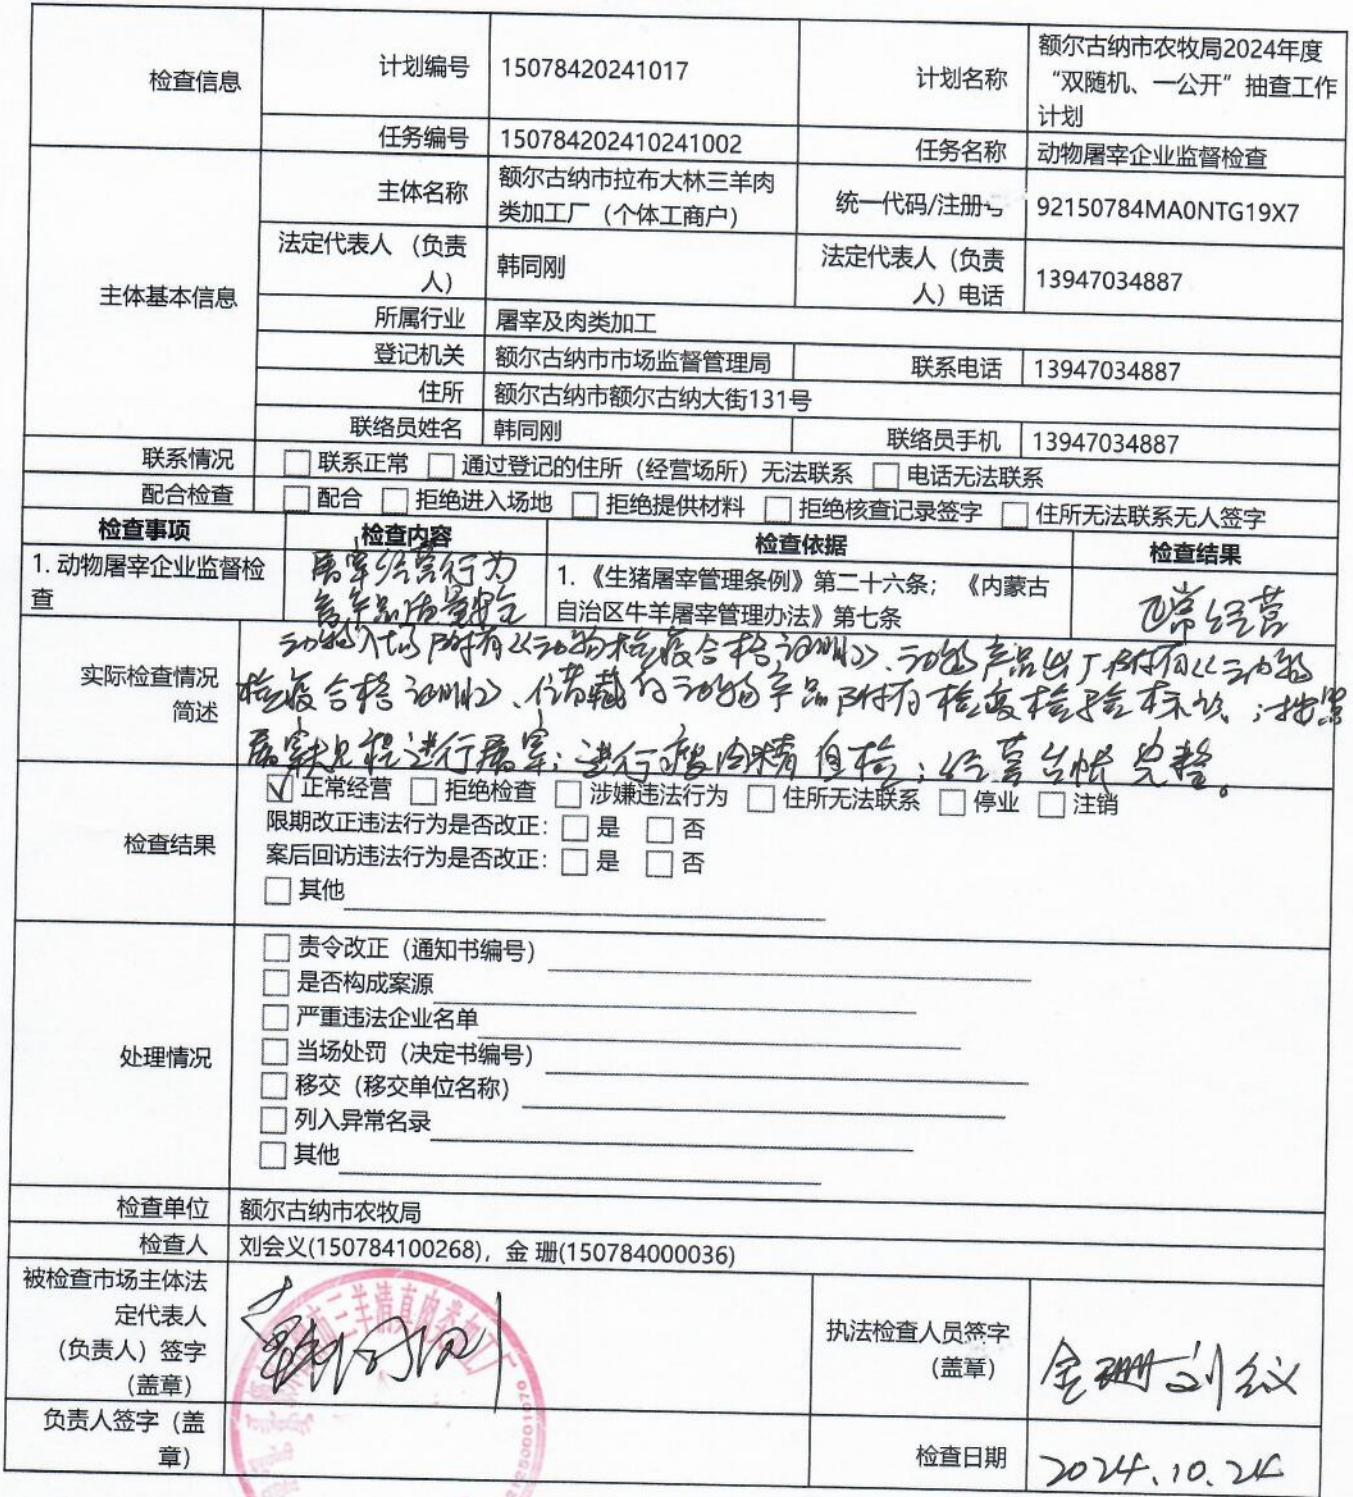 检查信息
计划编号 15078420241017 计划名称 额尔古纳市农牧局2024年度
“双随机、一公开”抽查工作
计划
任务编号 150784202410241002 任务名称 动物屠宰企业监督检查
主体基本信息
主体名称 额尔古纳市拉布大林三羊肉
类加工厂（个体工商户）
统一代码/注册号 92150784MA0NTG19X7
法定代表人（负责
人）
韩同刚
法定代表人（负责
人）电话
13947034887
所属行业 屠宰及肉类加工
登记机关 额尔古纳市市场监督管理局 联系电话 13947034887
住所 额尔古纳市额尔古纳大街131号
联络员姓名 韩同刚 联络员手机 13947034887
联系情况 联系正常 通过登记的住所（经营场所）无法联系 电话无法联系
配合检查 配合 拒绝进入场地 拒绝提供材料 拒绝核查记录签字 住所无法联系无人签字
检查事项 检查内容 检查依据 检查结果
1. 动物屠宰企业监督检
查
屠宰经营行为
1. 《生猪屠宰管理条例》第二十六条； 《内蒙古
自治区牛羊屠宰管理办法》第七条
正常经营
实际检查情况
简述
动物入场附有《动物检疫合格证明》、动物产品出厂附有《动物
检疫合格证明》、动物产品附有检疫检验标识；按照
屠宰规程进行屠宰；进行瘦肉精自检；经营台帐完整。
检查结果
正常经营 拒绝检查 涉嫌违法行为 住所无法联系 停业 注销
限期改正违法行为是否改正： 是 否
案后回访违法行为是否改正： 是 否
其他
处理情况
责令改正（通知书编号）
是否构成案源
严重违法企业名单
当场处罚（决定书编号）
移交（移交单位名称）
列入异常名录
其他
检查单位 额尔古纳市农牧局
检查人 刘会义(150784100268)，金 珊(150784000036)
被检查市场主体法
定代表人
（负责人）签字
（盖章）
韩同刚
三羊清真肉类加工厂
执法检查人员签字
（盖章）
金珊 刘会义
负责人签字（盖
章）
检查日期 2024.10.24